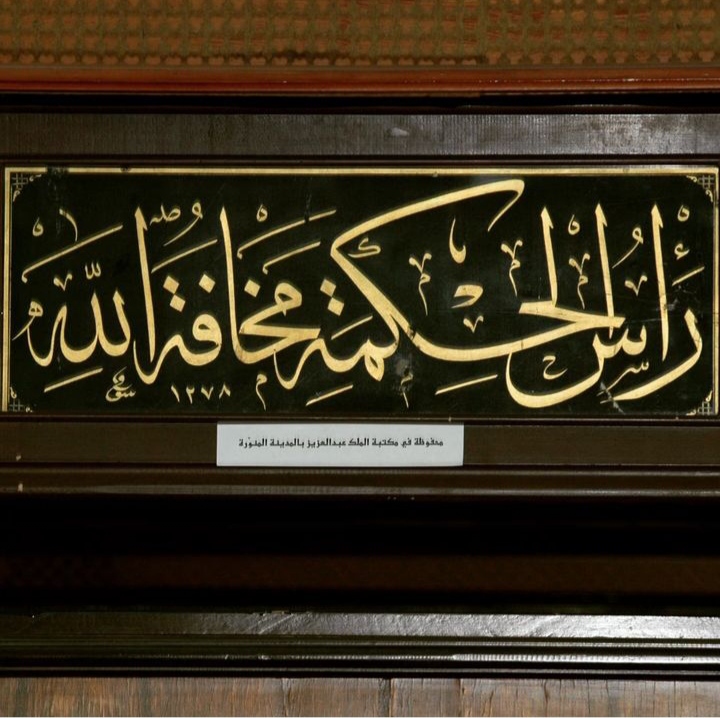 رَأسُ الحِكمَةِ مَخَافَةُ اللهِ
١٢٧٨
محفوظة في مكتبة الملك عبدالعزيز بالمدينة المنوّرة